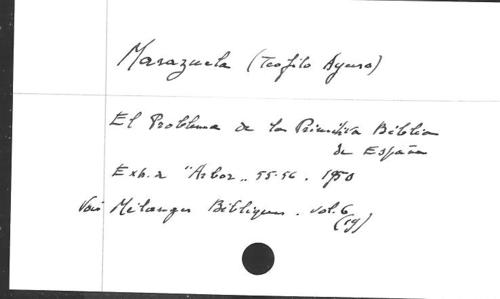 Marazuela (Teofilo Ayuso)
El Problema de la Primitiva Biblia
de España
Ext. a "Arbor" 55-56. 1950
Voir Mélanges Bibliques. vol. 6
(19)